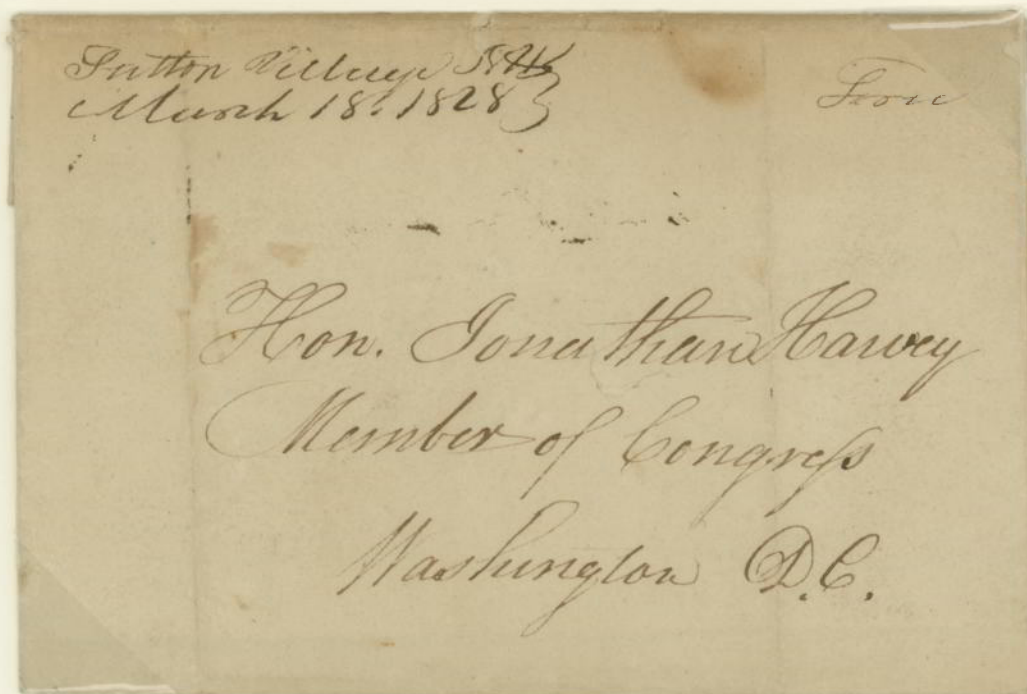 Sutton Village N.H.
March 18. 1828
Free
Hon. Jonathan Harvey
Member of Congress
Washington D.C.